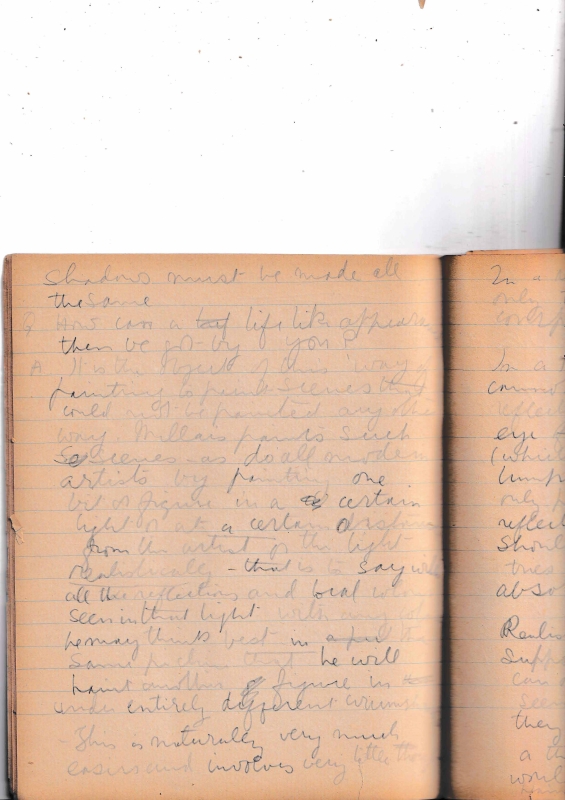 Shadows must be made all
the same
Q How can a life like appears
then be got by you?
A It is the object of this way of
painting to paint scenes that
could not be painted any other
way. Millais paints such
scenes - as do all modern
artists by painting one
bit or figure in a certain
light or at a certain distance
from the artist or the light
realistically - that is to say with
all the reflections and local colour
seen in that light with any
he may think best in the
same picture that he will
paint another figure in
under entirely different
This is naturally very much
easier and involves very little
In a
only

In a
cannot
reflect
eye
(which
lump
only
reflect
should
tries
abso

Suppo
can
seen
they
a th
woul